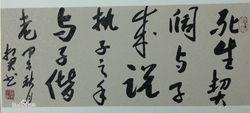 死生契
阔与子
成说
执子之手
与子偕
老
甲午秋月
书